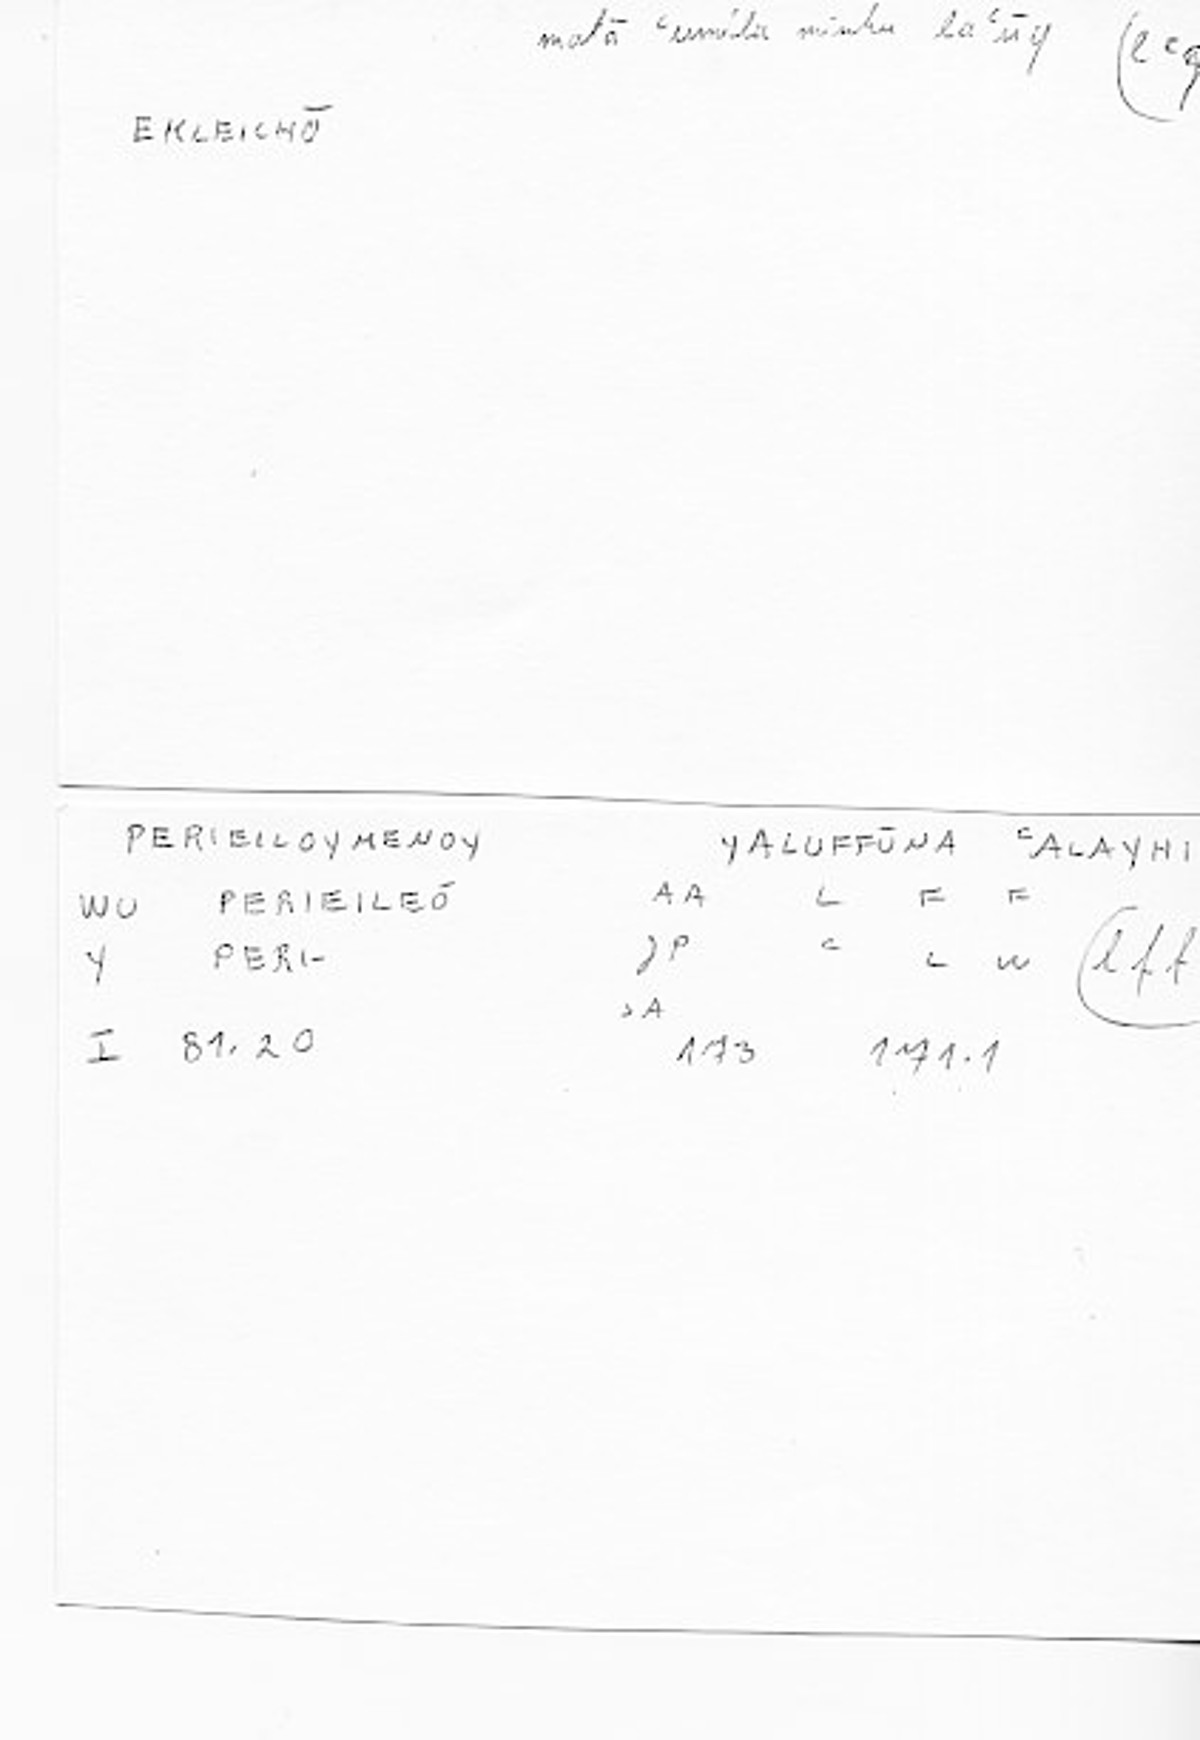 matā ʿumila minhu laʿūq (lʿq
EKLEICHŌ
PERIEILLOYMENOY YALUFFŪNA ʿALAYHI
WU PERIEILEŌ AA L F F
Y PERI- P ʿ L W (lff
A
I 81.20 173 171.1